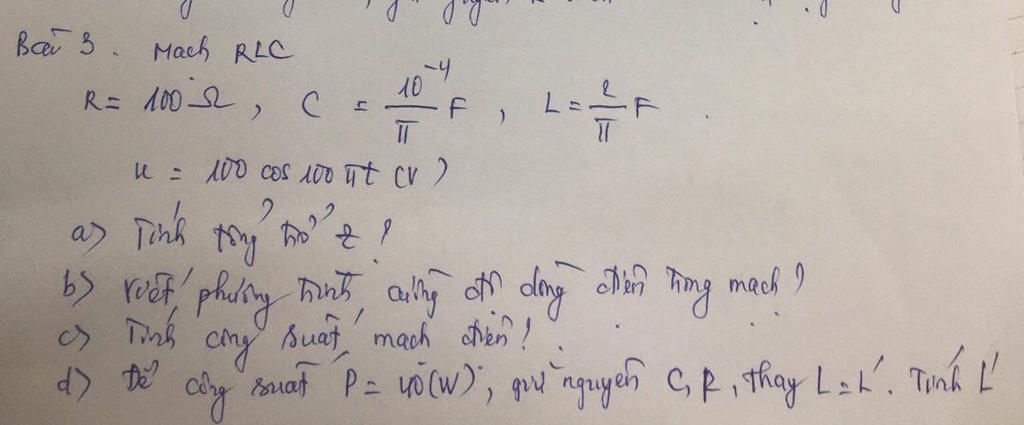 Bài 3. Mạch RLC
R = 100 Ω, C = 10^-4/π F, L = 2/π F.
u = 100 cos 100πt (V)
a) Tính tổng trở Z?
b) Viết phương trình cường độ dòng điện trong mạch?
c) Tính công suất mạch điện?
d) Để công suất P = 40(W), giữ nguyên C, R, thay L = L'. Tính L'